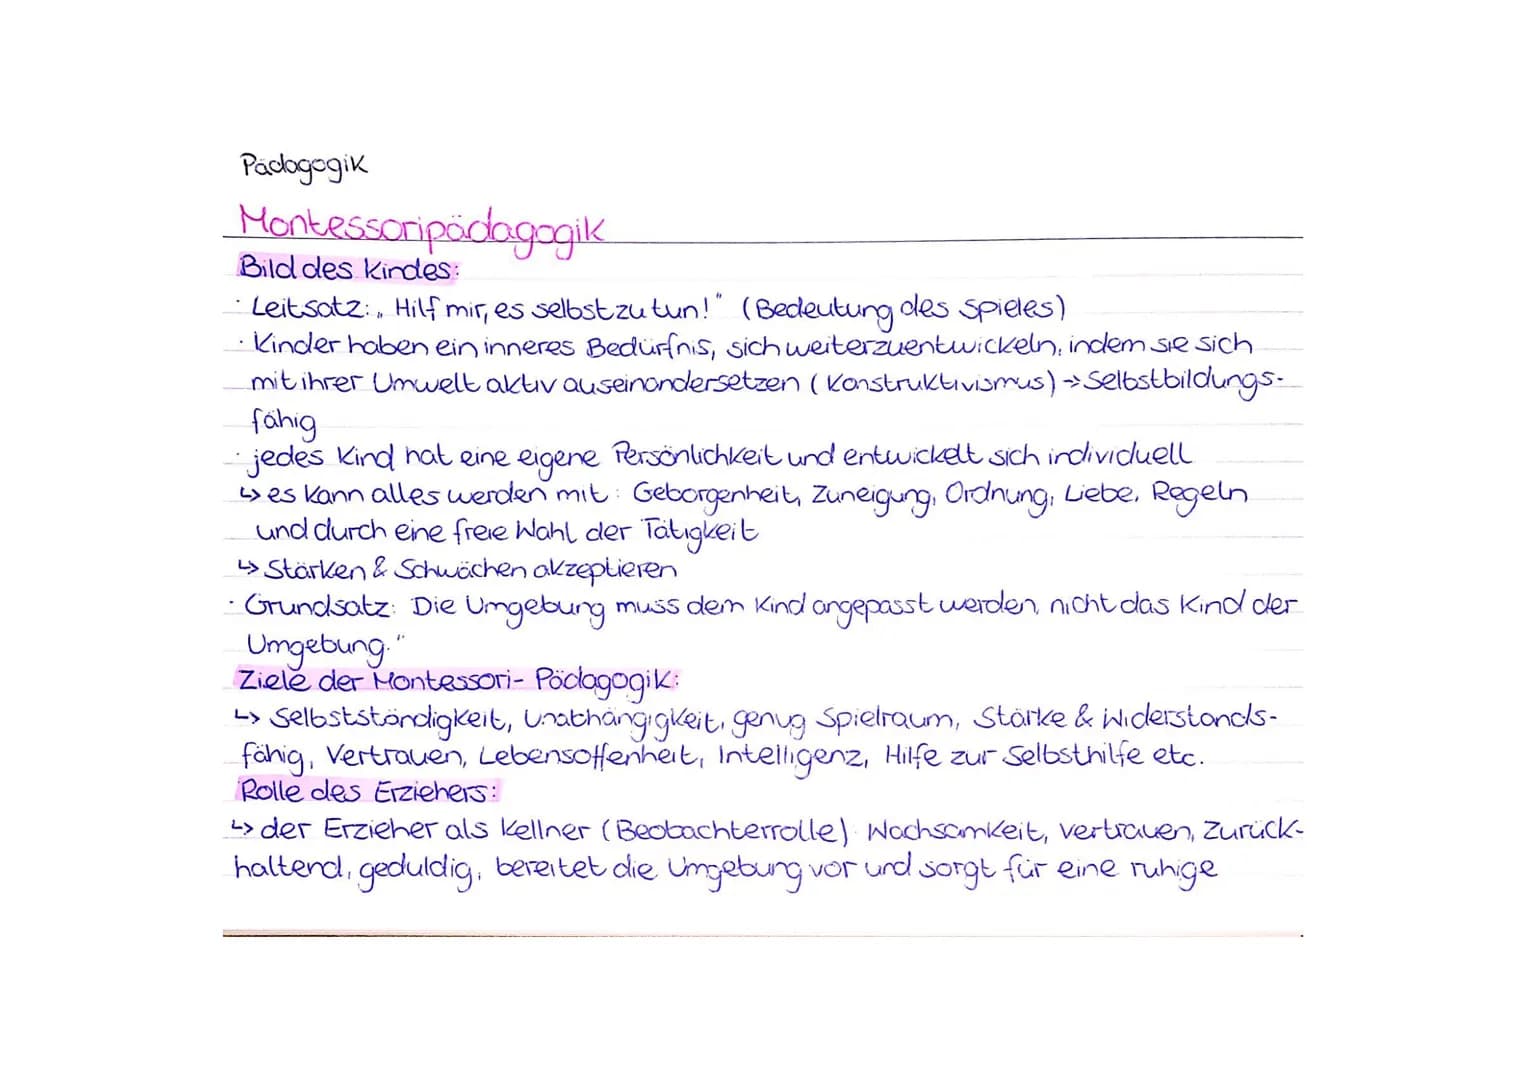 Pädagogik
Montessoripädagogik
Bild des Kindes:
· Leitsatz: „Hilf mir, es selbst zu tun!" (Bedeutung des Spieles)
· Kinder haben ein inneres Bedürfnis, sich weiterzuentwickeln, indem sie sich
mit ihrer Umwelt aktiv auseinandersetzen (Konstruktivismus) → Selbstbildungs-
fähig
· jedes Kind hat eine eigene Persönlichkeit und entwickelt sich individuell
↳ es kann alles werden mit: Geborgenheit, Zuneigung, Ordnung, Liebe, Regeln
und durch eine freie Wahl der Tätigkeit
↳ Stärken & Schwächen akzeptieren
· Grundsatz: Die Umgebung muss dem Kind angepasst werden, nicht das Kind der
Umgebung."
Ziele der Montessori- Pädagogik:
↳ Selbstständigkeit, Unabhängigkeit, genug Spielraum, Stärke & Widerstands-
fähig, Vertrauen, Lebensoffenheit, Intelligenz, Hilfe zur Selbsthilfe etc.
Rolle des Erziehers:
↳ der Erzieher als Kellner (Beobachterrolle) Wachsamkeit, vertrauen, Zurück-
haltend, geduldig, bereitet die Umgebung vor und sorgt für eine ruhige